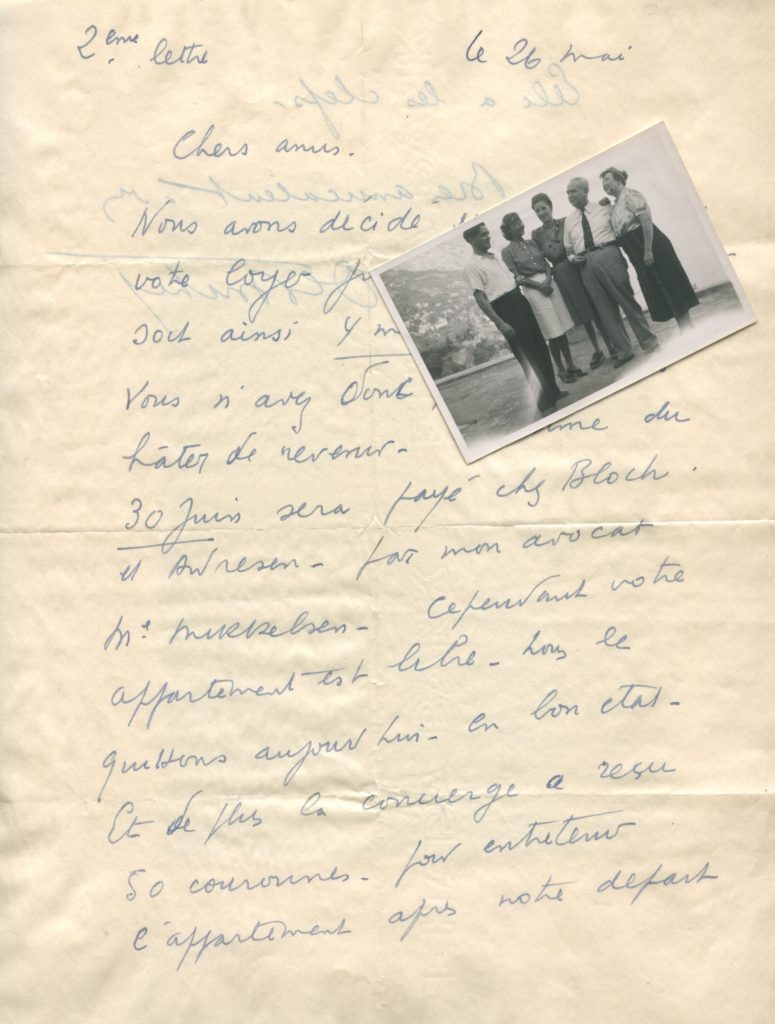 2eme lettre
le 26 mai
Chers amis.
Nous avons décidé
votre loyer
soit ainsi 4 m
Vous n'avez donc
hâter de revenir.
du
30 Juin sera payé chez Bloch.
et Andresen - par mon avocat
Me Mikkelsen - Cependant votre
appartement est libre - nous le
quittons aujourd'hui - en bon état -
Et de plus la concierge a reçu
50 couronnes - pour entretenir
l'appartement après notre départ
Elle a les clefs.
Bien amicalement